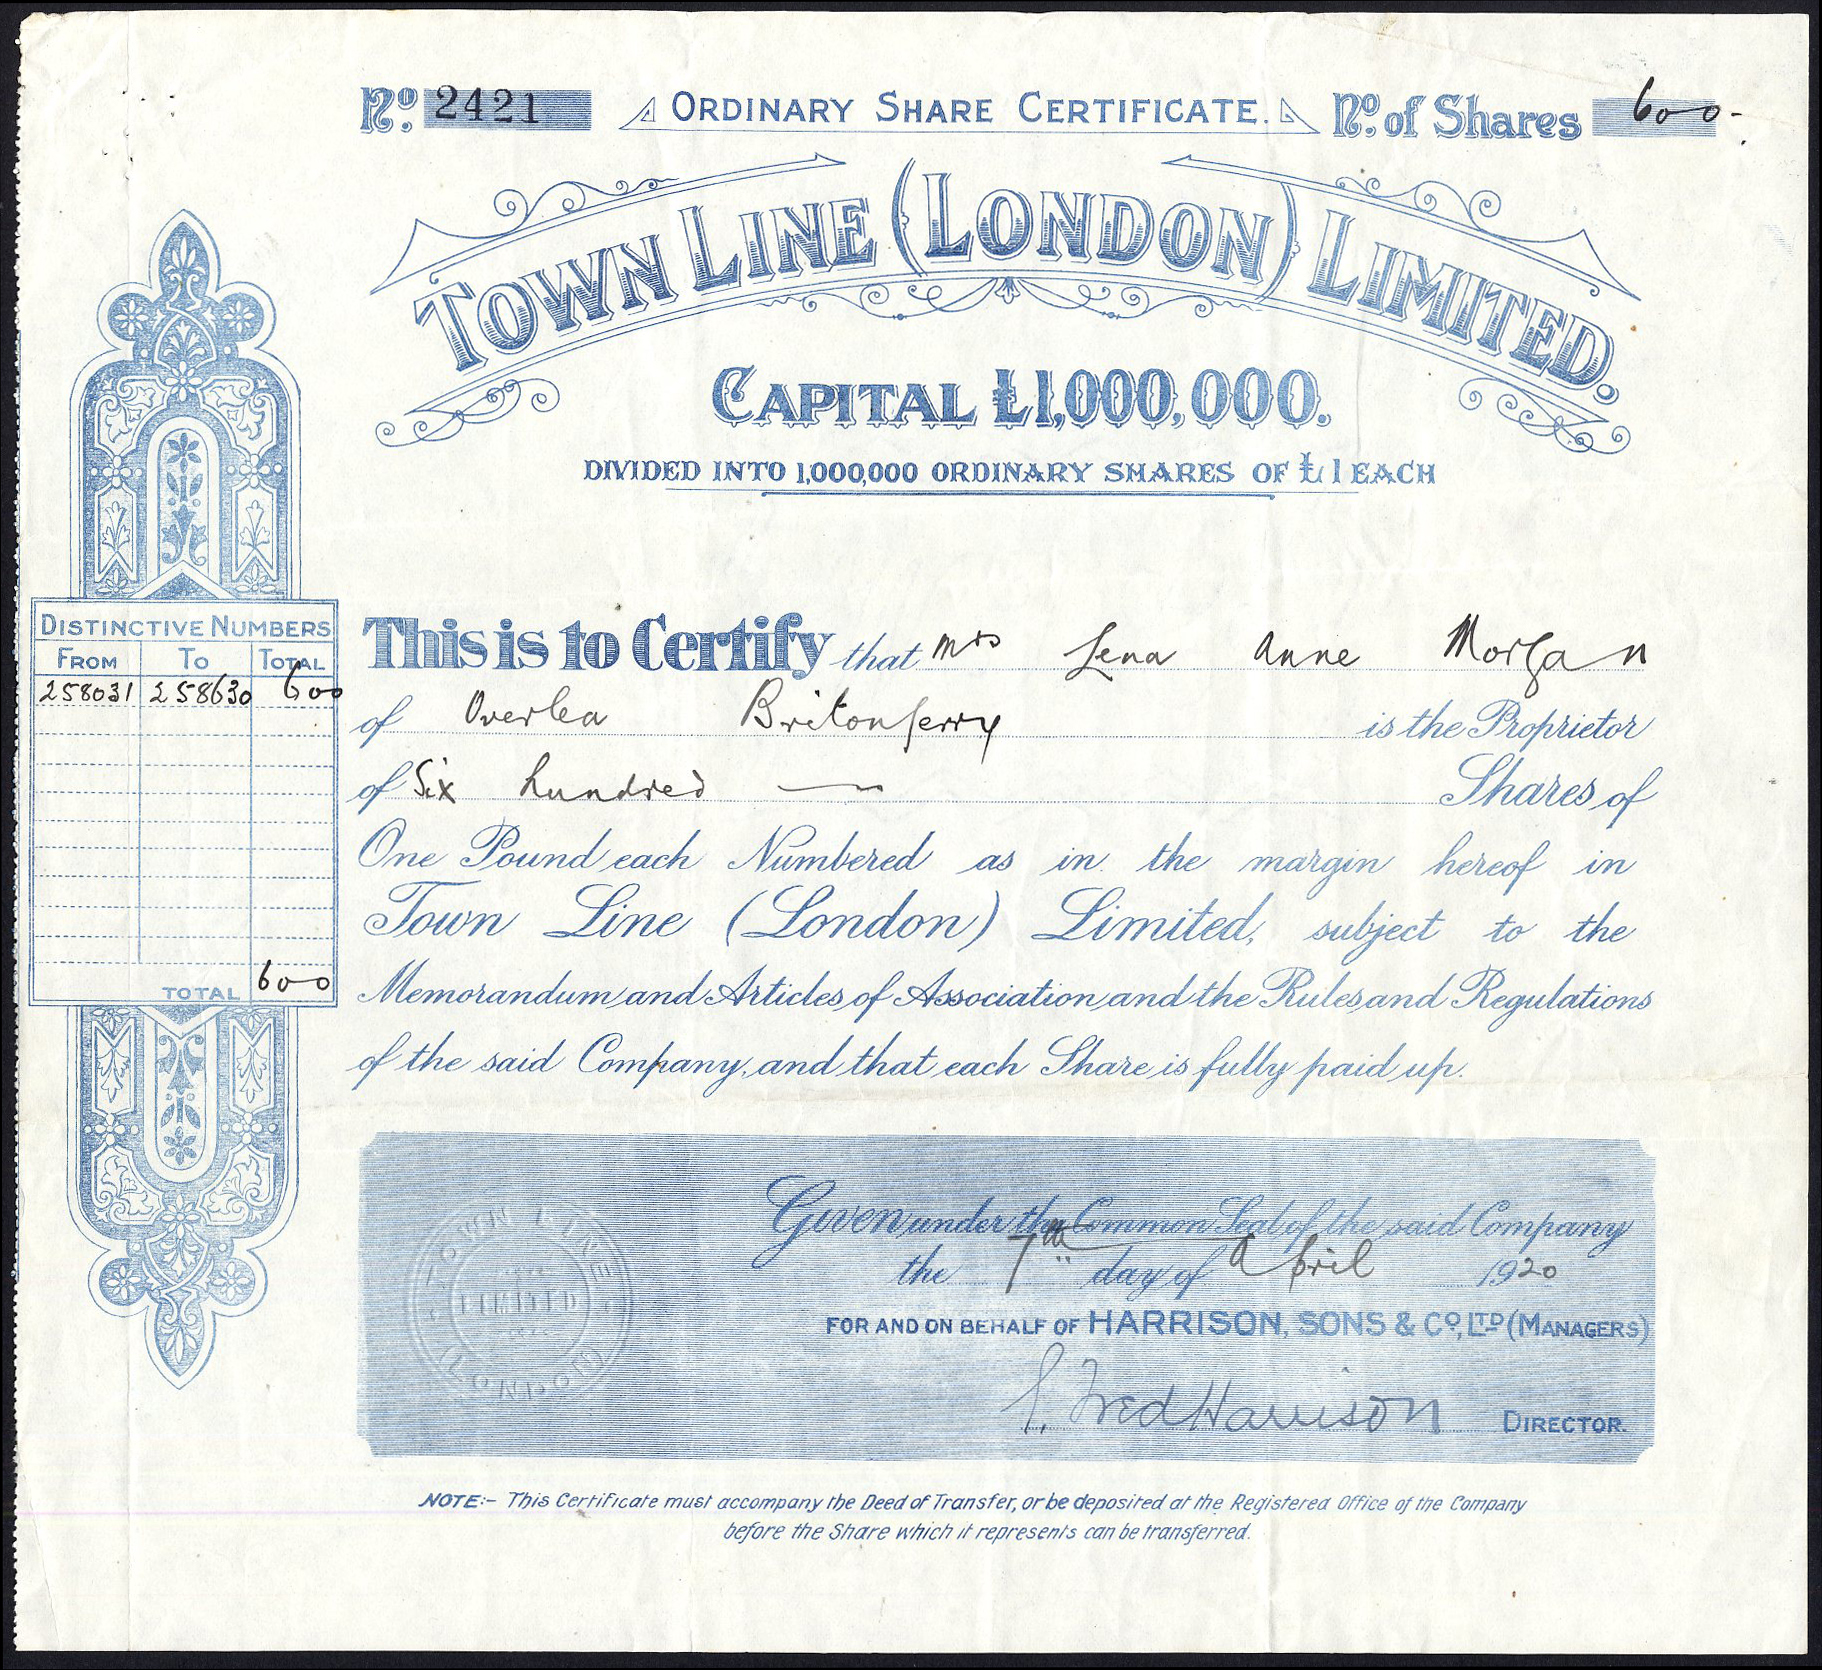 No. 2421 ORDINARY SHARE CERTIFICATE. No. of Shares 600-
TOWN LINE (LONDON) LIMITED.
CAPITAL £1,000,000.
DIVIDED INTO 1,000,000 ORDINARY SHARES OF £1 EACH
DISTINCTIVE NUMBERS
FROM TO TOTAL
258031 258630 600
TOTAL 600
This is to Certify that Mrs Lena Anne Morgan
of Overlea Britonferry is the Proprietor
of Six hundred — Shares of
One Pound each Numbered as in the margin hereof in
Town Line (London) Limited, subject to the
Memorandum and Articles of Association and the Rules and Regulations
of the said Company, and that each Share is fully paid up.
TOWN LINE
LIMITED
(LONDON)
Given under the Common Seal of the said Company
the 7th day of April 1920
FOR AND ON BEHALF OF HARRISON, SONS & CO., LTD (MANAGERS)
Fred Harrison DIRECTOR.
NOTE:- This Certificate must accompany the Deed of Transfer, or be deposited at the Registered Office of the Company
before the Share which it represents can be transferred.